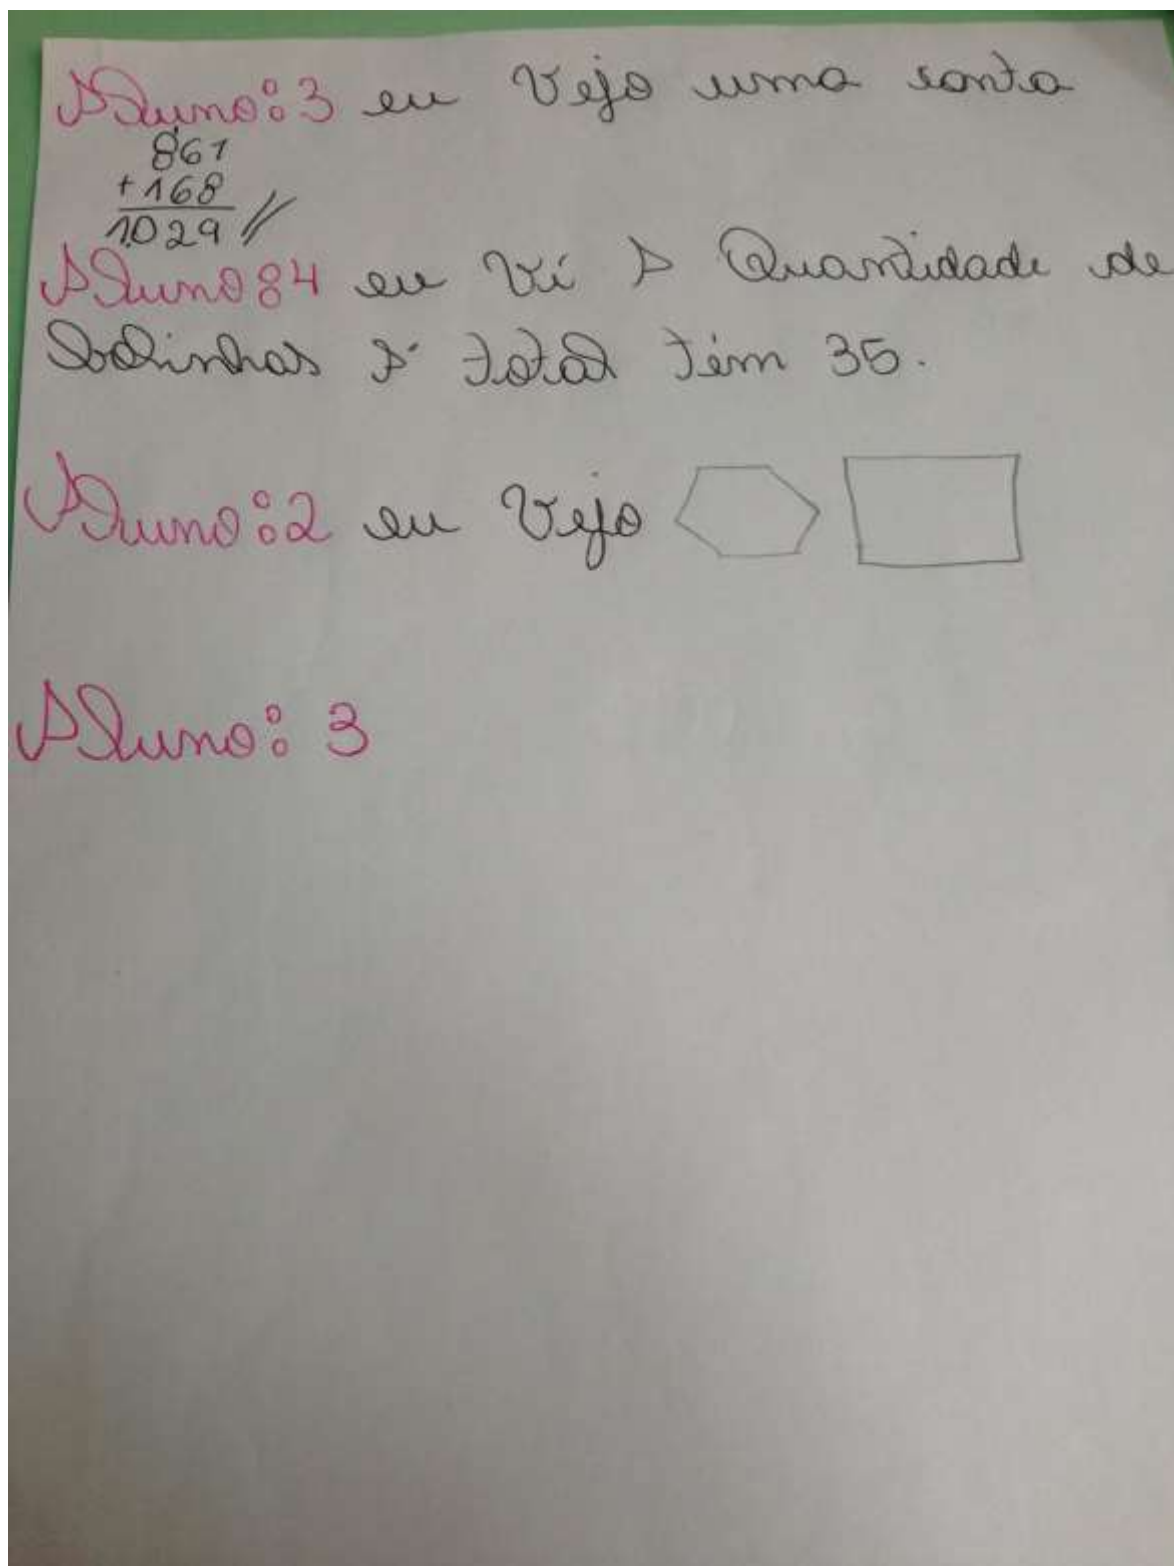 Aluno: 3 eu Vejo uma conta
861
+168
1.029 //
Aluno: 4 eu Vi A Quantidade de
bolinhas A total tém 35.
Aluno: 2 eu Vejo
Aluno: 3